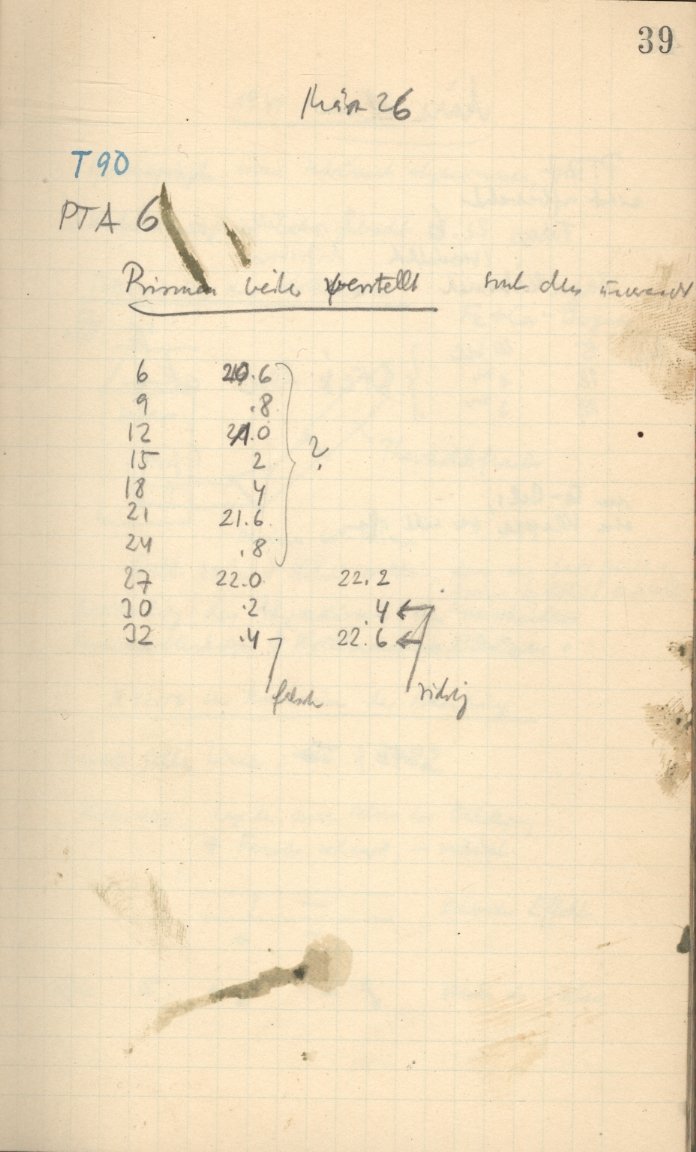 39
März 26
T90
PTA 6
Prismen beide verstellt und dies
6 20.6
9 .8
12 21.0
15 2
18 4
21 21.6
24 .8
?
27 22.0 22.2
30 .2 .4
32 .4 22.6
falsch richtig